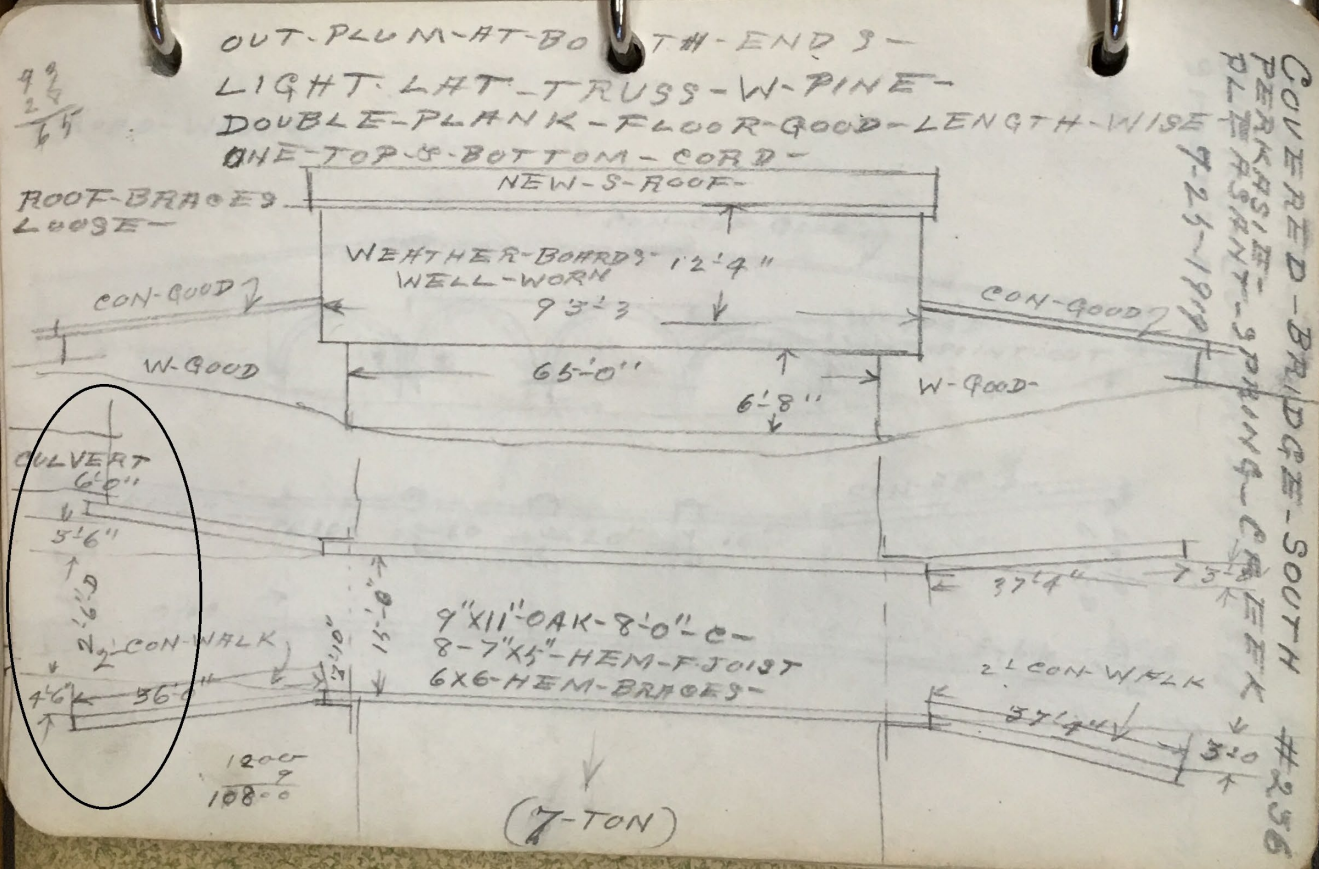 OUT-PLUM-AT-BOTH-ENDS-
LIGHT-LAT-TRUSS-W-PINE-
DOUBLE-PLANK-FLOOR-GOOD-LENGTH-WISE
ONE-TOP-&-BOTTOM-CORD-
NEW-S-ROOF-
ROOF-BRACES
LOOSE-
WEATHER-BOARDS
WELL-WORN
12'-4"
93'-3
CON-GOOD
CON-GOOD
W-GOOD
65'-0"
6'-8"
W-GOOD-
CULVERT
6'-0"
5'-6"
2'-6"-D
15'-0"
37'-4"
9"X11"-OAK-8'-0"-C-
8-7"X5"-HEM-F-JOIST
6X6-HEM-BRACES-
2' CON-WALK
2' CON-WALK
4'6"
37'-4"
1200
9
10800
(7-TON)
COVERED-BRIDGE-SOUTH #256
PERKASIE-
PLEASANT-SPRING-CREEK